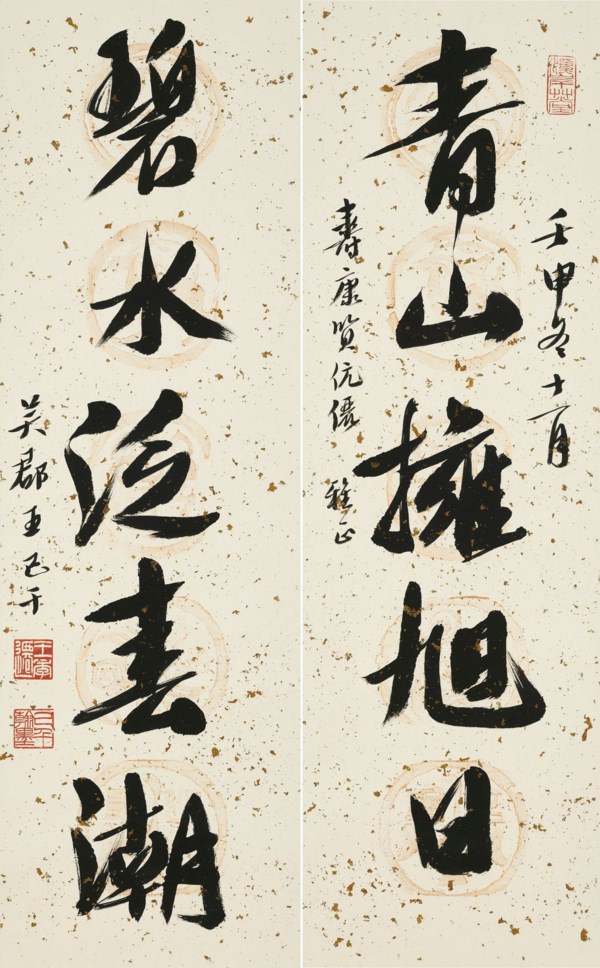 壬申冬十一月
青山擁旭日
壽康賢伉儷 雅正
碧水泛春潮
吴郡王己千